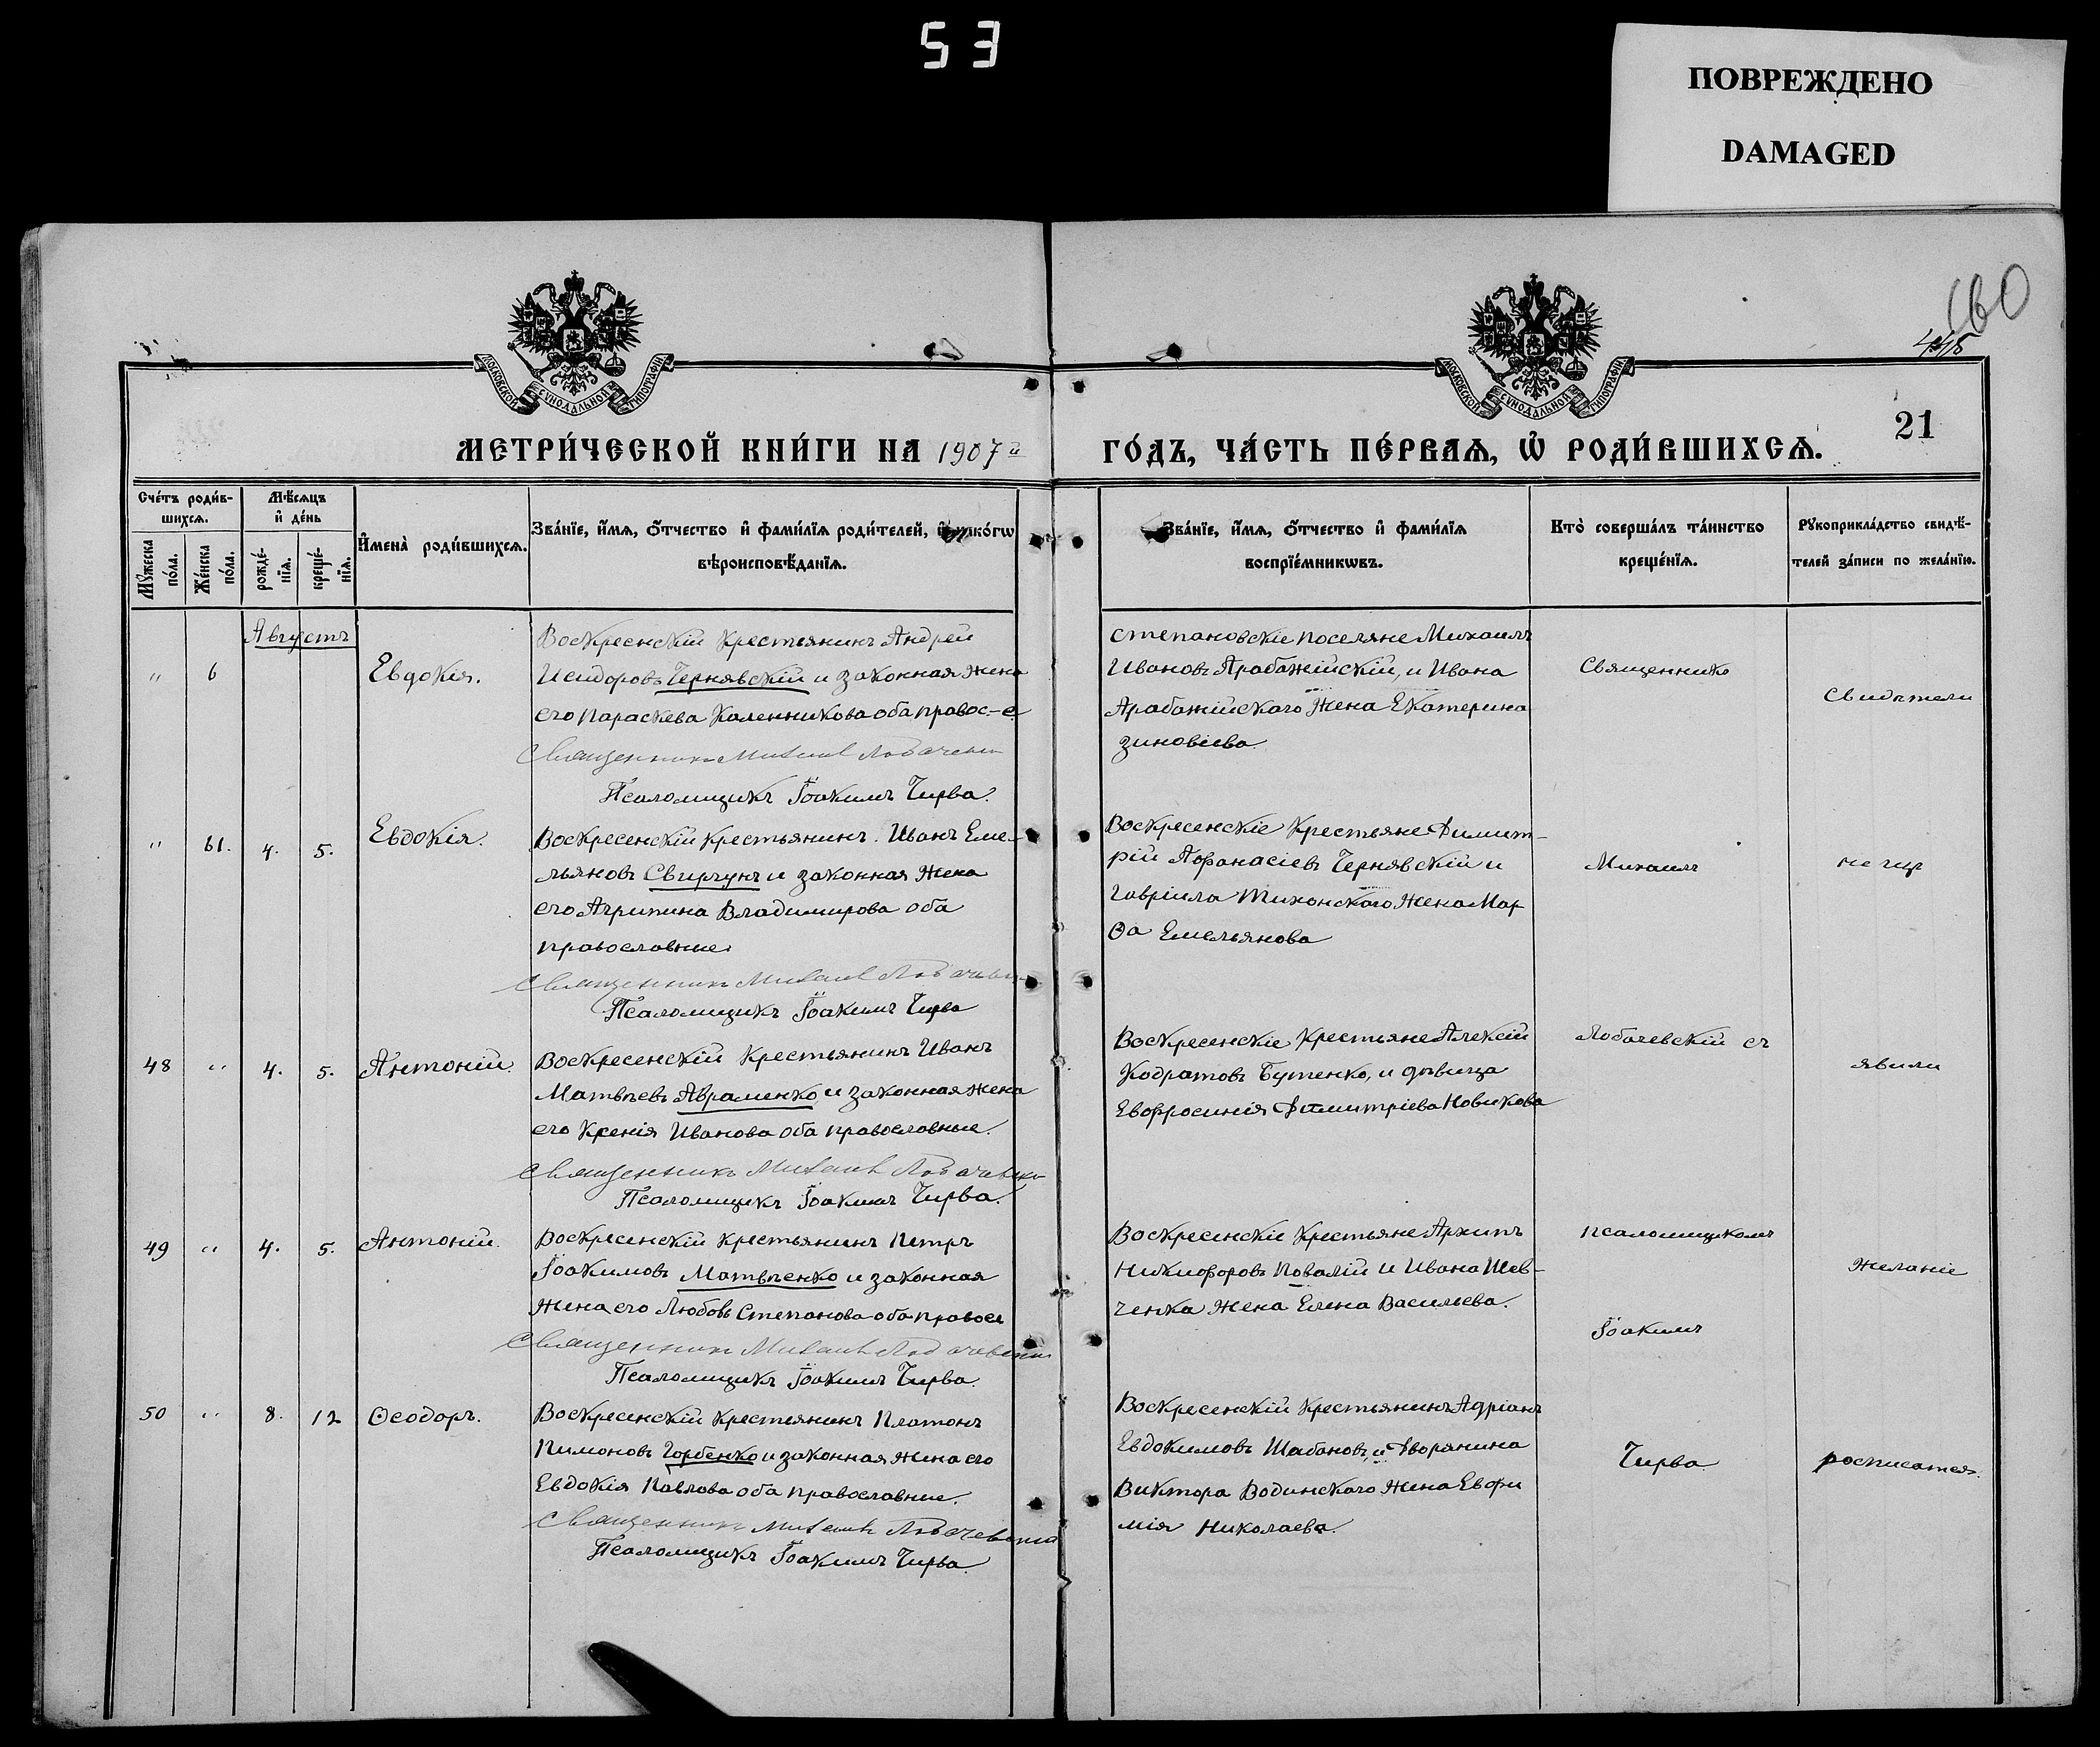 53
ПОВРЕЖДЕНО
DAMAGED
160
МОСКОВСКОЙ СѴНОДАЛЬНОЙ ТИПОГРАФІИ
МОСКОВСКОЙ СѴНОДАЛЬНОЙ ТИПОГРАФІИ
21
МЕТРИ́ЧЕСКОЙ КНИ́ГИ НА 1907й
ГО́ДЪ, ЧА́СТЬ ПЕ́РВАѦ, Ѡ҆ РОДИ́ВШИХСѦ.
Сче́тъ роди́в-
шихсѧ.
Мѣ́сѧцъ
и҆ де́нь
Мꙋ́жеска
по́ла.
Же́нска
по́ла.
рожде́-
нїѧ.
креще́-
нїѧ.
И҆мена̀ роди́вшихсѧ.
Зва́нїе, и҆́мѧ, ѻ҆́тчество и҆ фами́лїѧ роди́телей, и҆ како́гѡ
вѣроисповѣ́данїѧ.
Зва́нїе, и҆́мѧ, ѻ҆́тчество и҆ фами́лїѧ
воспрїе́мникѡвъ.
Кто̀ соверша́лъ та́инство
креще́нїѧ.
Рꙋкоприкла́дство свидѣ́-
телей за́писи по жела́нїю.
Августъ
" 6
Евдокія.
Воскресенскій крестьянинъ Андрей
Исидоровъ Чернявскій и законная жена
его Параскева Каленникова оба правос-е
Священникъ Михаил Лобачевски
Псаломщикъ Іоакимъ Чирва.
Степановскіе поселяне Михаилъ
Ивановъ Арабажійскій, и Ивана
Арабажійскаго жена Екатерина
Зиновіева.
Священникъ
Свидѣтели
" 61. 4. 5. Евдокія.
Воскресенскій крестьянинъ Иванъ Еме-
льяновъ Свиргунъ и законная жена
его Агрипина Владимирова оба
православные
Священникъ Михаил Лобачевски
Псаломщикъ Іоакимъ Чирва
Воскресенскіе крестьяне Димит-
рій Афанасіевъ Чернявскій и
Гавріила Тихонскаго жена Мар
ѳа Емельянова
Михаилъ
48 " 4. 5. Антоній.
Воскресенскій крестьянинъ Иванъ
Матвѣевъ Авраменко и законная жена
его Ксенія Иванова оба православные.
Священникъ Михаил Лобачевски
Псаломщикъ Іоакимъ Чирва.
Воскресенскіе крестьяне Алексій
Кодратовъ Бутенко, и дѣвица
Евфросинія Димитріева Новикова
Лобачевскій съ
явили
49 " 4. 5. Антоній.
Воскресенскій крестьянинъ Петръ
Іоакимовъ Матвѣенко и законная
жена его Любовь Степанова оба правосл
Священникъ Михаил Лобачевски
Псаломщикъ Іоакимъ Чирва.
Воскресенскіе крестьяне Архипъ
Никифоровъ Повалій и Ивана Шев-
ченка жена Елена Васильева.
псаломщикомъ
желаніе
Іоакимъ
50 " 8. 12 Ѳеодоръ.
Воскресенскій крестьянинъ Платонъ
Пимоновъ Горбенко и законная жена его
Евдокія Павлова оба православные.
Священникъ Михаил Лобачевски
Псаломщикъ Іоакимъ Чирва.
Воскресенскій крестьянинъ Адріанъ
Евдокимовъ Шабановъ, и Дворянина
Виктора Водинскаго жена Евфи
мія Николаева.
Чирва
росписатся.